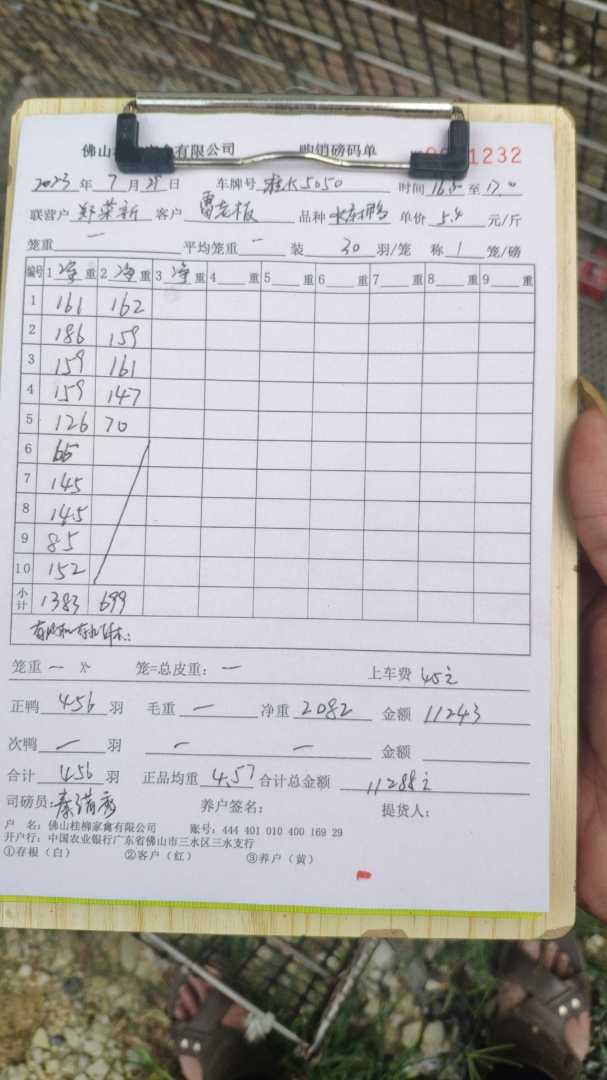 佛山 禽有限公司 购销磅码单 1232
2023年7月29日 车牌号 桂K5050 时间 至 17.0
联营户 郑荣新 客户 曹老板 品种 单价 5.4 元/斤
笼重 一 平均笼重 一 装 30 羽/笼 称 1 笼/磅
编号 1 净 重 2 净 重 3 净 重 4 重 5 重 6 重 7 重 8 重 9 重
1 161 162
2 186 159
3 159 161
4 159 147
5 126 70
6 65
7 145
8 145
9 85
10 152
小计 1383 699
笼重 一 × 笼=总皮重: 一 上车费 45元
正鸭 456 羽 毛重 一 净重 2082 金额 11243
次鸭 一 羽 一 一 金额
合计 456 羽 正品均重 4.57 合计总金额 11288元
司磅员: 养户签名: 提货人:
户 名: 佛山桂柳家禽有限公司 账号: 444 401 010 400 169 29
开户行: 中国农业银行广东省佛山市三水区三水支行
①存根(白) ②客户(红) ③养户(黄)